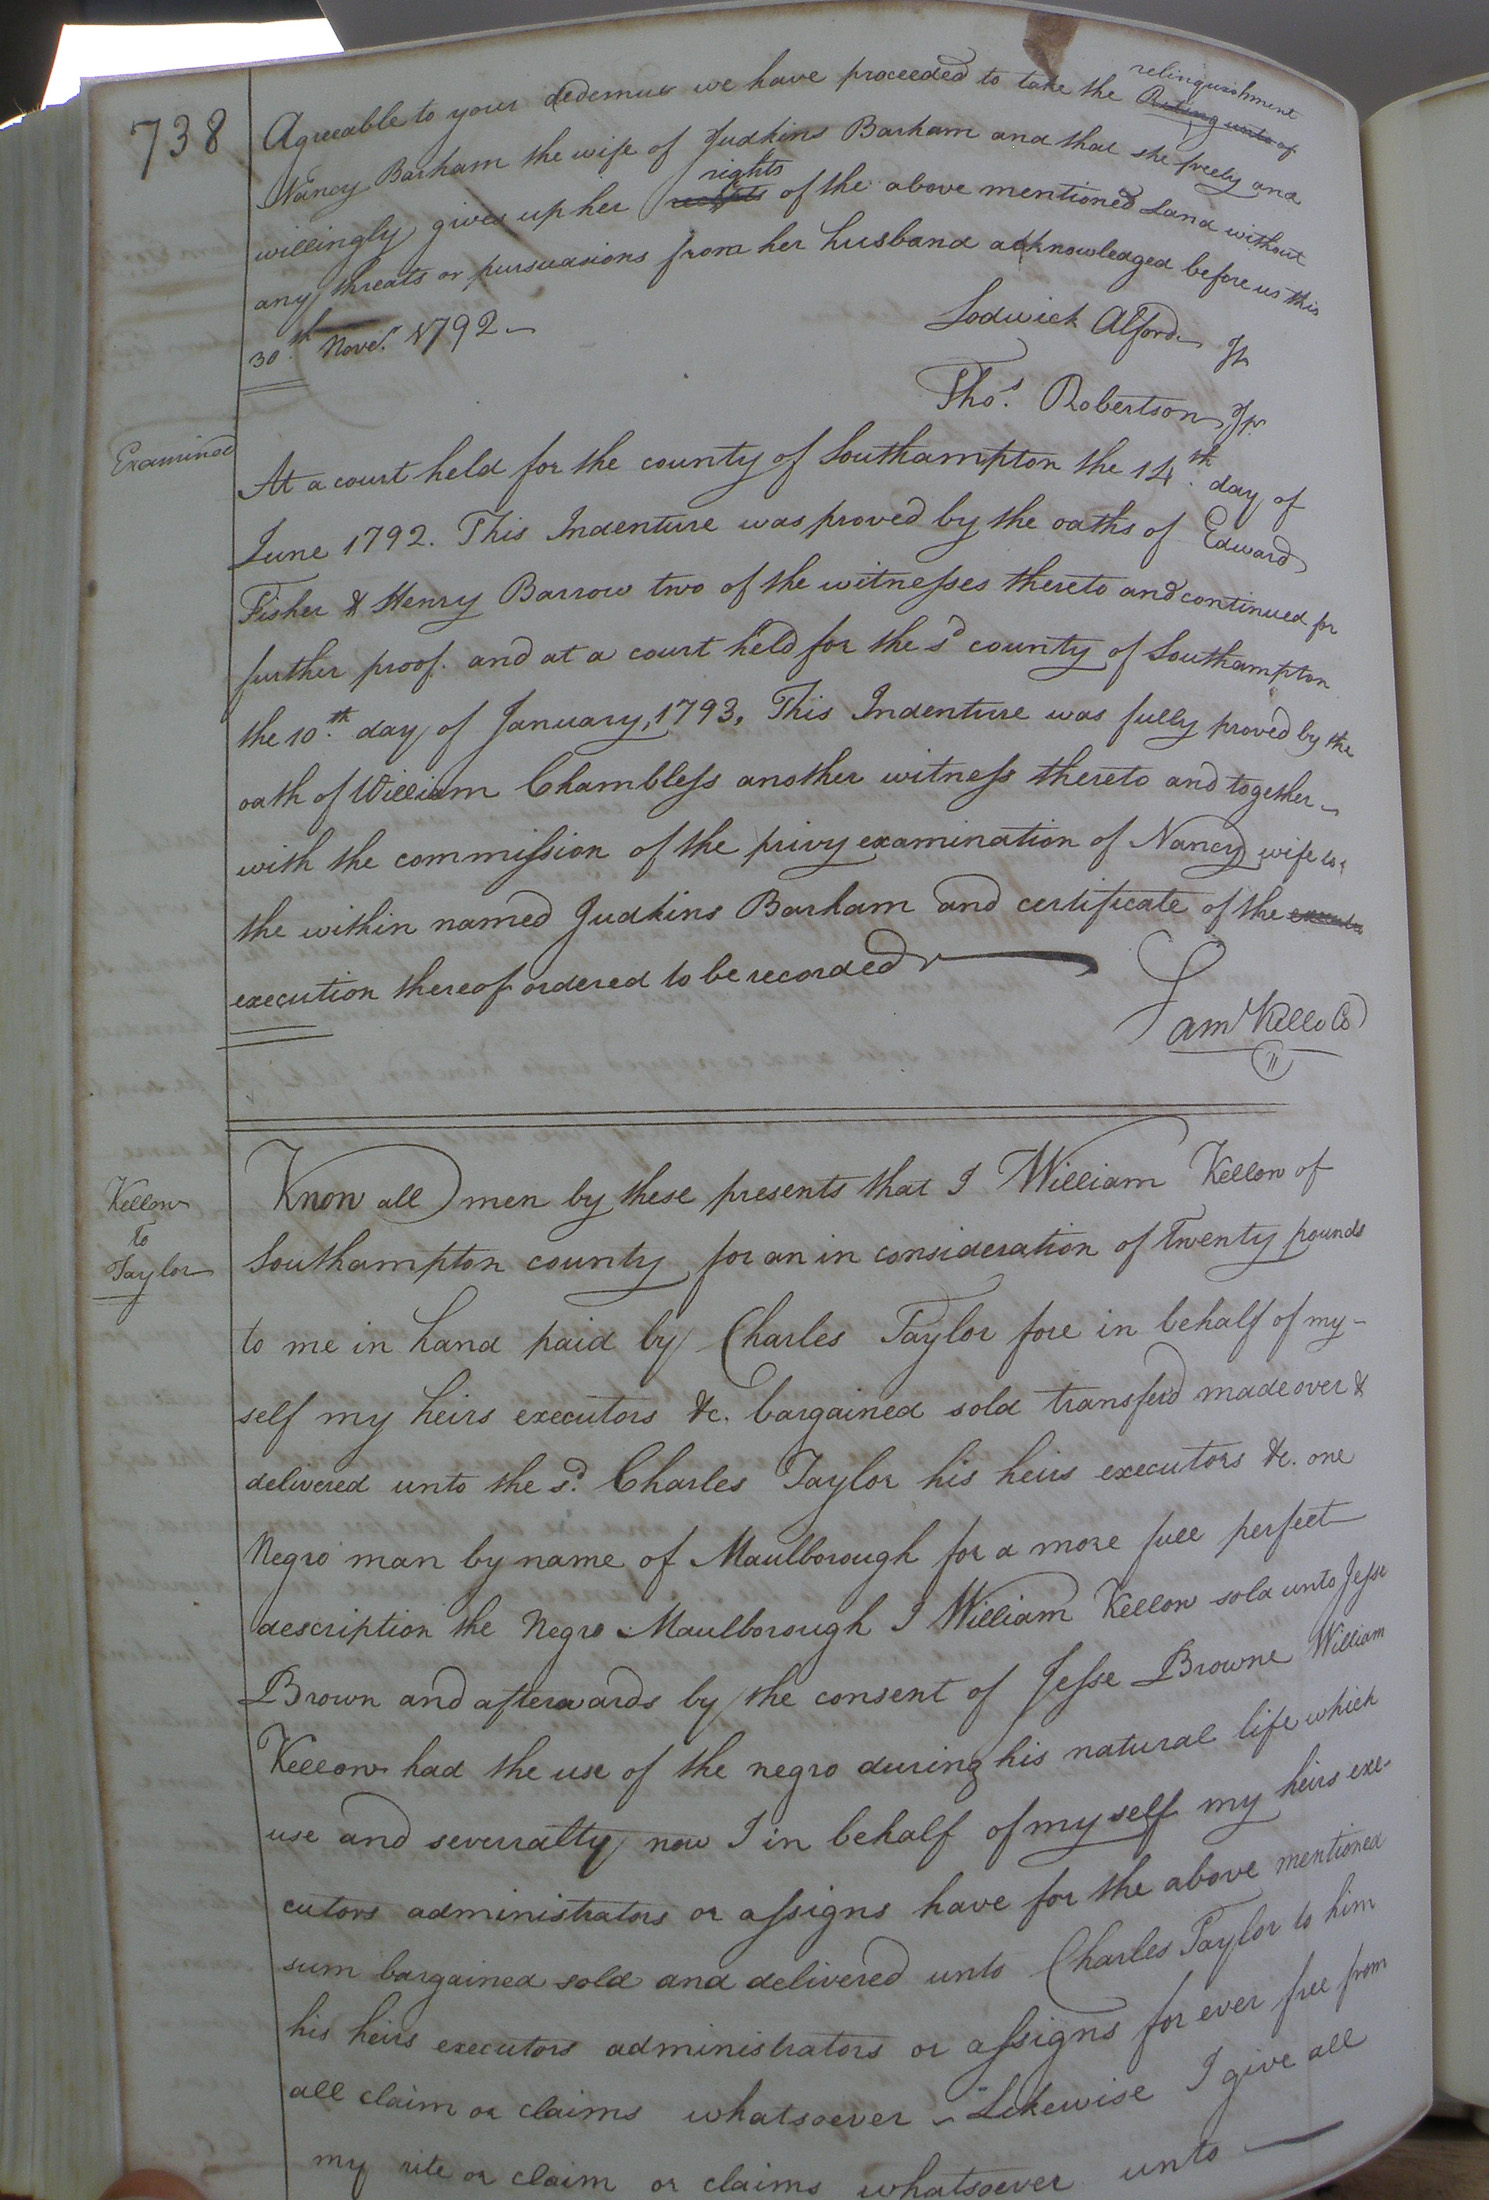 738
Agreeable to your dedemus we have proceeded to take the relinquishment of
Nancy Barham the wife of Judkins Barham and that she freely and
willingly gives up her rights of the above mentioned Land without
any threats or pursuasions from her husband acknowledged before us this
30th. Novr. 1792
Lodwick Alford Jr
Thos. Robertson Jr.
Examined
At a court held for the county of Southampton the 14th. day of
June 1792. This Indenture was proved by the oaths of Edward
Fisher & Henry Barrow two of the witnesses thereto and continued for
further proof. and at a court held for the sd county of Southampton
the 10th. day of January, 1793, This Indenture was fully proved by the
oath of William Chambless another witness thereto and together
with the commission of the privy examination of Nancy wife to
the within named Judkins Barham and certificate of the
execution thereof ordered to be recorded
Sam Kello C
Kellow
to
Taylor
Know all men by these presents that I William Kellow of
Southampton county for an in consideration of twenty pounds
to me in hand paid by Charles Taylor fore in behalf of my-
self my heirs executors &c. bargained sold transferd made over &
delivered unto the sd. Charles Taylor his heirs executors &c. one
Negro man by name of Maulborough for a more full perfect
description the Negro Maulborough I William Kellow sold unto Jesse
Brown and afterwards by the consent of Jesse Browne William
Kellow had the use of the negro during his natural life which
use and severralty now I in behalf of myself my heirs exe-
cutors administrators or assigns have for the above mentioned
sum bargained sold and delivered unto Charles Taylor to him
his heirs executors administrators or assigns for ever free from
all claim or claims whatsoever Likewise I give all
my rite or claim or claims whatsoever unto